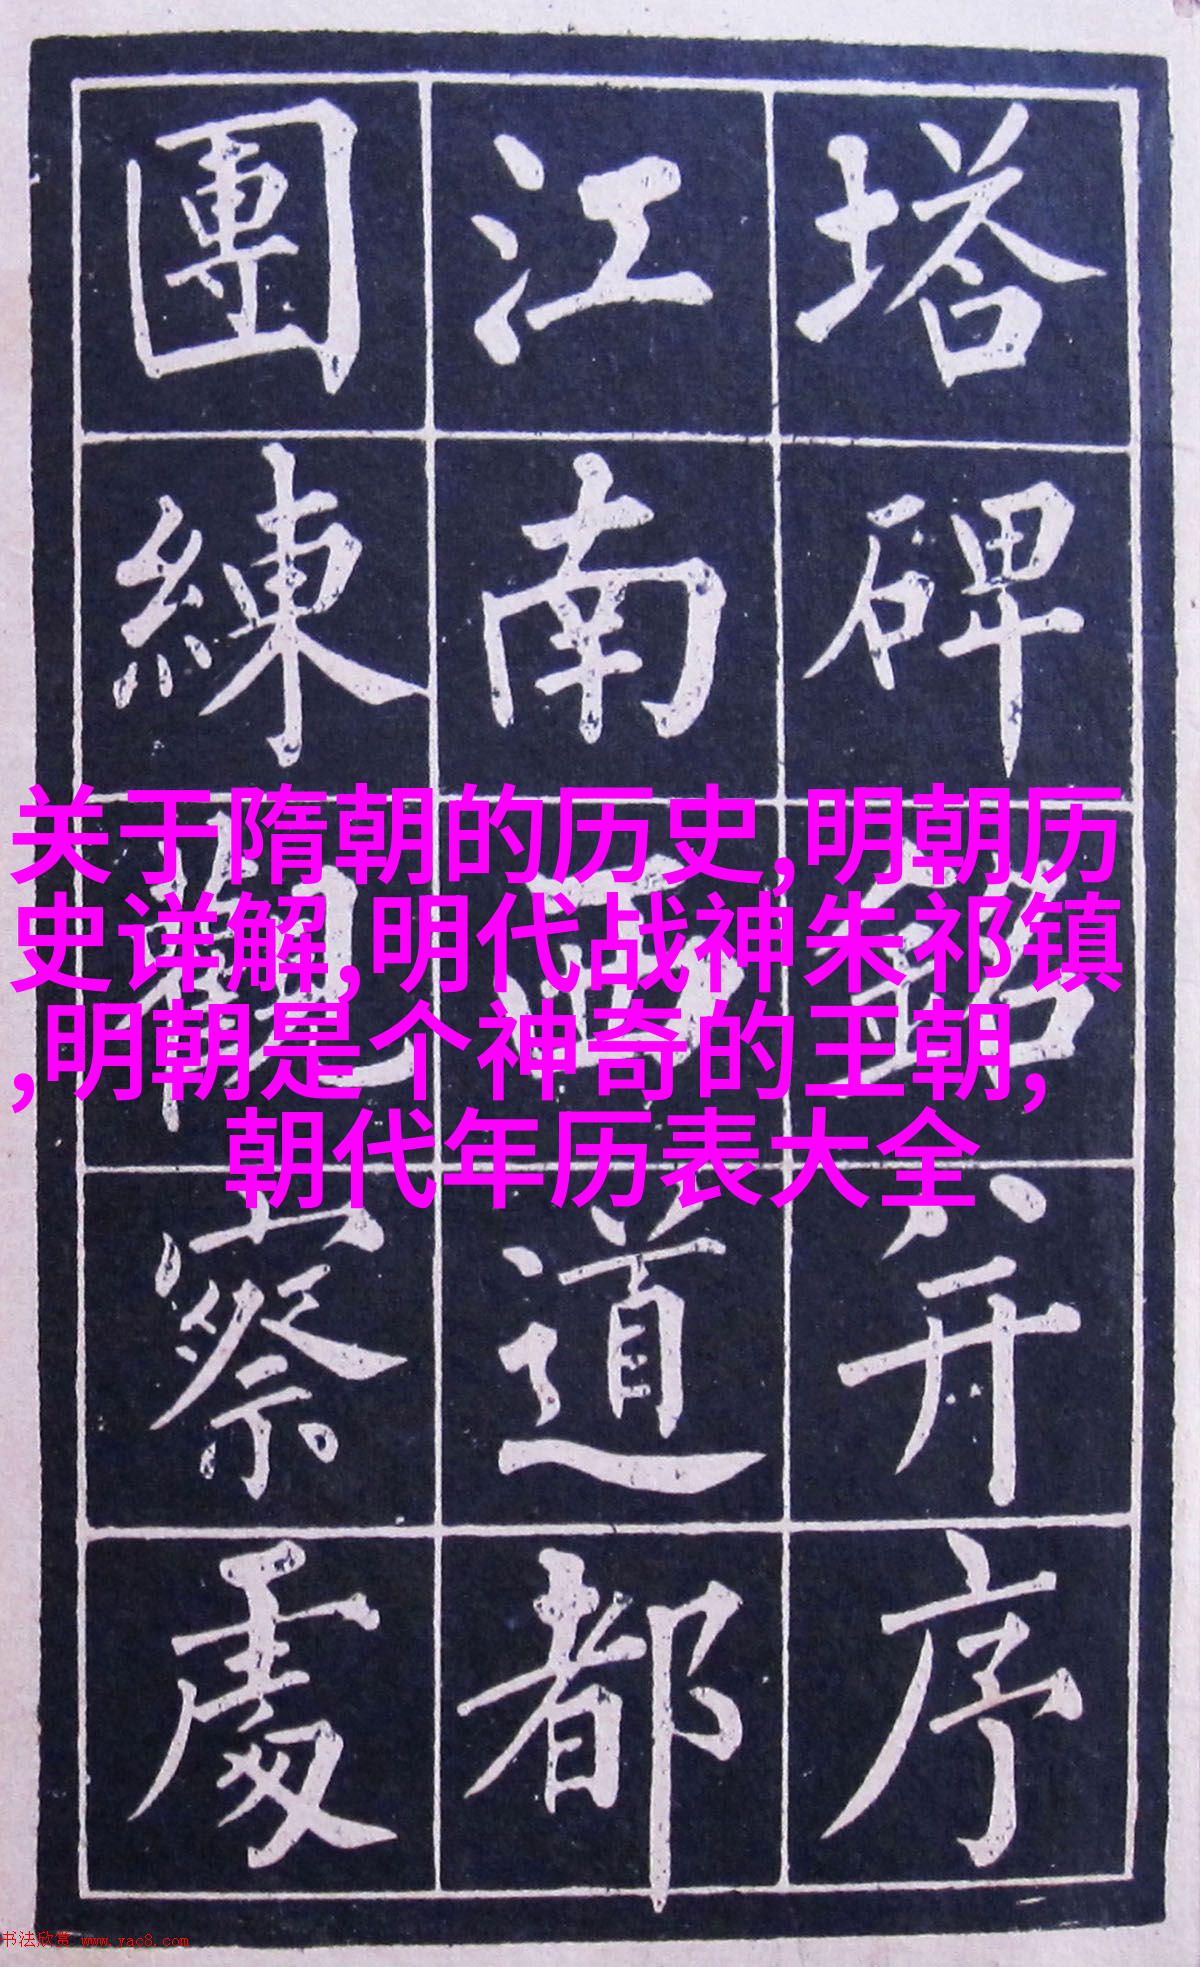 塔碑銘并序
江南西道都
團練觀察處
关于隋朝的历史,明朝历
史详解,明代战神朱祁镇
,明朝是个神奇的王朝,
朝代年历表大全
书法欣赏 www.yac8.com